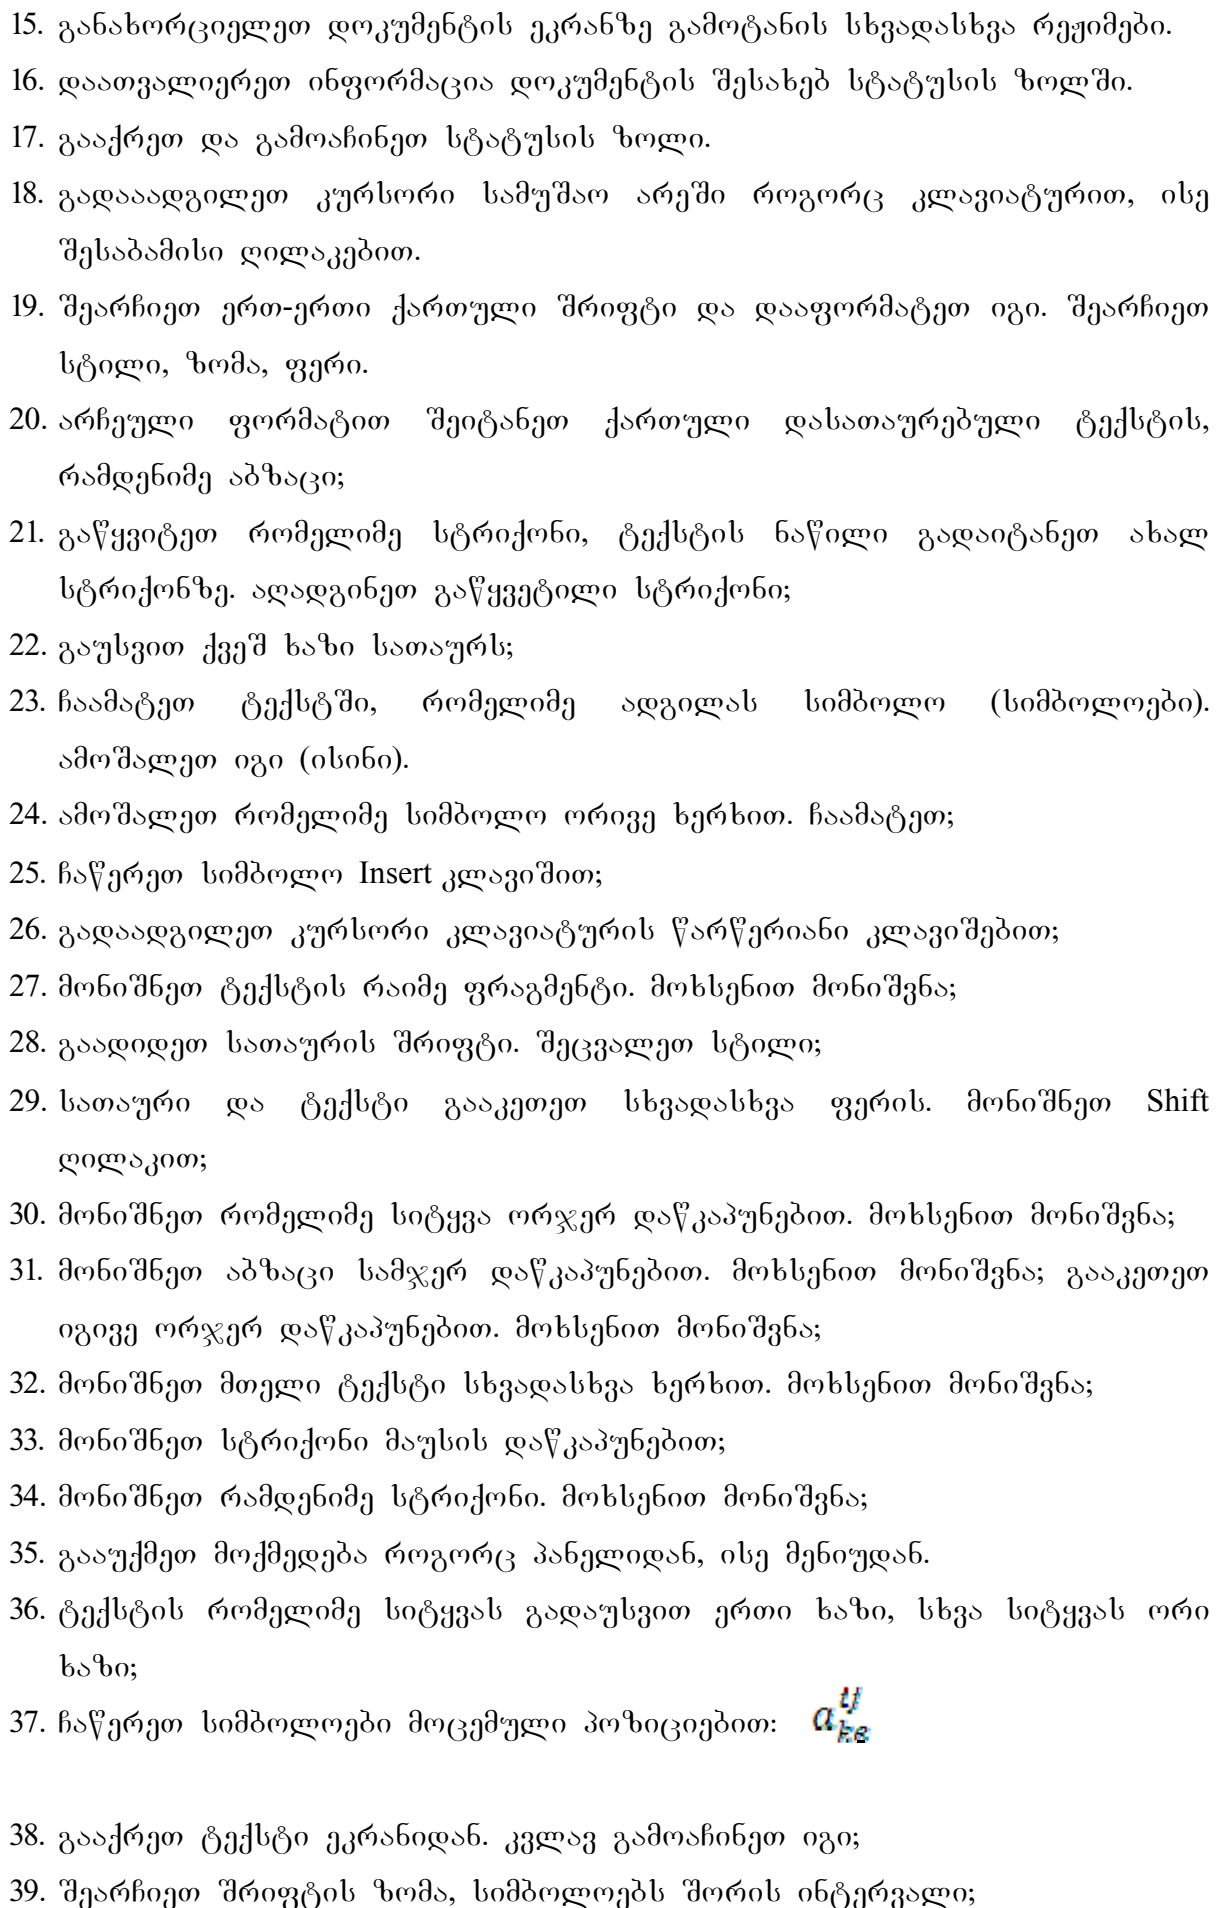 15. განახორციელეთ დოკუმენტის ეკრანზე გამოტანის სხვადასხვა რეჟიმები.
16. დაათვალიერეთ ინფორმაცია დოკუმენტის შესახებ სტატუსის ზოლში.
17. გააქრეთ და გამოაჩინეთ სტატუსის ზოლი.
18. გადააადგილეთ კურსორი სამუშაო არეში როგორც კლავიატურით, ისე
შესაბამისი ღილაკებით.
19. შეარჩიეთ ერთ-ერთი ქართული შრიფტი და დააფორმატეთ იგი. შეარჩიეთ
სტილი, ზომა, ფერი.
20. არჩეული ფორმატით შეიტანეთ ქართული დასათაურებული ტექსტის,
რამდენიმე აბზაცი;
21. გაწყვიტეთ რომელიმე სტრიქონი, ტექსტის ნაწილი გადაიტანეთ ახალ
სტრიქონზე. აღადგინეთ გაწყვეტილი სტრიქონი;
22. გაუსვით ქვეშ ხაზი სათაურს;
23. ჩაამატეთ ტექსტში, რომელიმე ადგილას სიმბოლო (სიმბოლოები).
ამოშალეთ იგი (ისინი).
24. ამოშალეთ რომელიმე სიმბოლო ორივე ხერხით. ჩაამატეთ;
25. ჩაწერეთ სიმბოლო Insert კლავიშით;
26. გადაადგილეთ კურსორი კლავიატურის წარწერიანი კლავიშებით;
27. მონიშნეთ ტექსტის რაიმე ფრაგმენტი. მოხსენით მონიშვნა;
28. გაადიდეთ სათაურის შრიფტი. შეცვალეთ სტილი;
29. სათაური და ტექსტი გააკეთეთ სხვადასხვა ფერის. მონიშნეთ Shift
ღილაკით;
30. მონიშნეთ რომელიმე სიტყვა ორჯერ დაწკაპუნებით. მოხსენით მონიშვნა;
31. მონიშნეთ აბზაცი სამჯერ დაწკაპუნებით. მოხსენით მონიშვნა; გააკეთეთ
იგივე ორჯერ დაწკაპუნებით. მოხსენით მონიშვნა;
32. მონიშნეთ მთელი ტექსტი სხვადასხვა ხერხით. მოხსენით მონიშვნა;
33. მონიშნეთ სტრიქონი მაუსის დაწკაპუნებით;
34. მონიშნეთ რამდენიმე სტრიქონი. მოხსენით მონიშვნა;
35. გააუქმეთ მოქმედება როგორც პანელიდან, ისე მენიუდან.
36. ტექსტის რომელიმე სიტყვას გადაუსვით ერთი ხაზი, სხვა სიტყვას ორი
ხაზი;
37. ჩაწერეთ სიმბოლოები მოცემული პოზიციებით:
38. გააქრეთ ტექსტი ეკრანიდან. კვლავ გამოაჩინეთ იგი;
39. შეარჩიეთ შრიფტის ზომა, სიმბოლოებს შორის ინტერვალი;